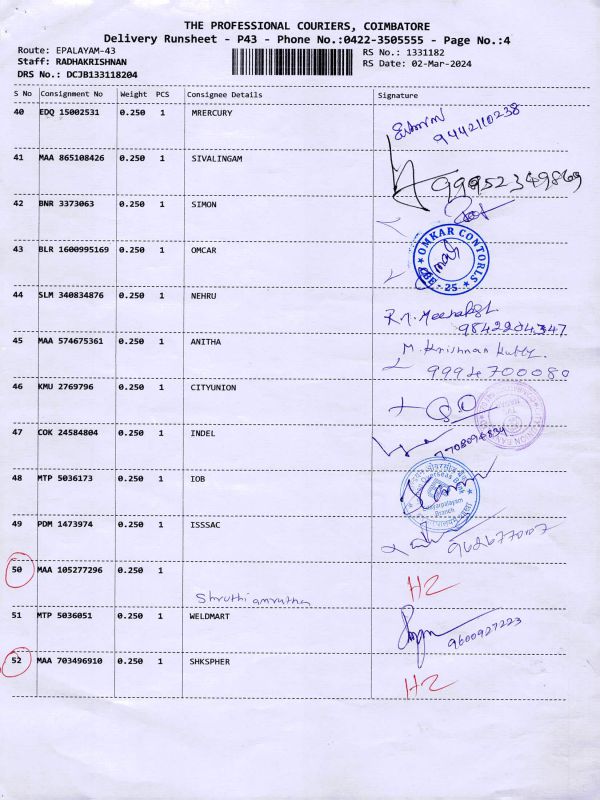 THE PROFESSIONAL COURIERS, COIMBATORE
Delivery Runsheet - P43 - Phone No.:0422-3505555 - Page No.:4
Route: EPALAYAM-43 RS No.: 1331182
Staff: RADHAKRISHNAN RS Date: 02-Mar-2024
DRS No.: DCJB133118204
S No Consignment No Weight PCS Consignee Details Signature
40 EDQ 15002531 0.250 1 MRERCURY
9442110238
41 MAA 865108426 0.250 1 SIVALINGAM
99952349869
42 BNR 3373063 0.250 1 SIMON
43 BLR 1600995169 0.250 1 OMCAR
OMKAR CONTORLS
CBE - 25
44 SLM 340834876 0.250 1 NEHRU
9842204347
45 MAA 574675361 0.250 1 ANITHA
M. Krishnan Kutty.
9994700080
46 KMU 2769796 0.250 1 CITYUNION
47 COK 24584804 0.250 1 INDEL
7708094834
48 MTP 5036173 0.250 1 IOB
Overseas Bank
Branch
49 PDM 1473974 0.250 1 ISSSAC
50 MAA 105277296 0.250 1
Shruthi amrutha H2
51 MTP 5036051 0.250 1 WELDMART
9600927223
52 MAA 703496910 0.250 1 SHKSPHER
H2